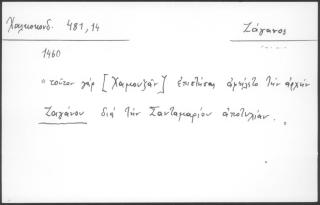 Χαλκοκονδ. 481,14 Ζάγανος
1460
"τοῦτον γάρ [Χαμουζᾶν] ἐπιστήσας ἀφείλετο τὴν ἀρχὴν
Ζαγάνου διά τὴν Σανταμαρίου ἀποτυχίαν.